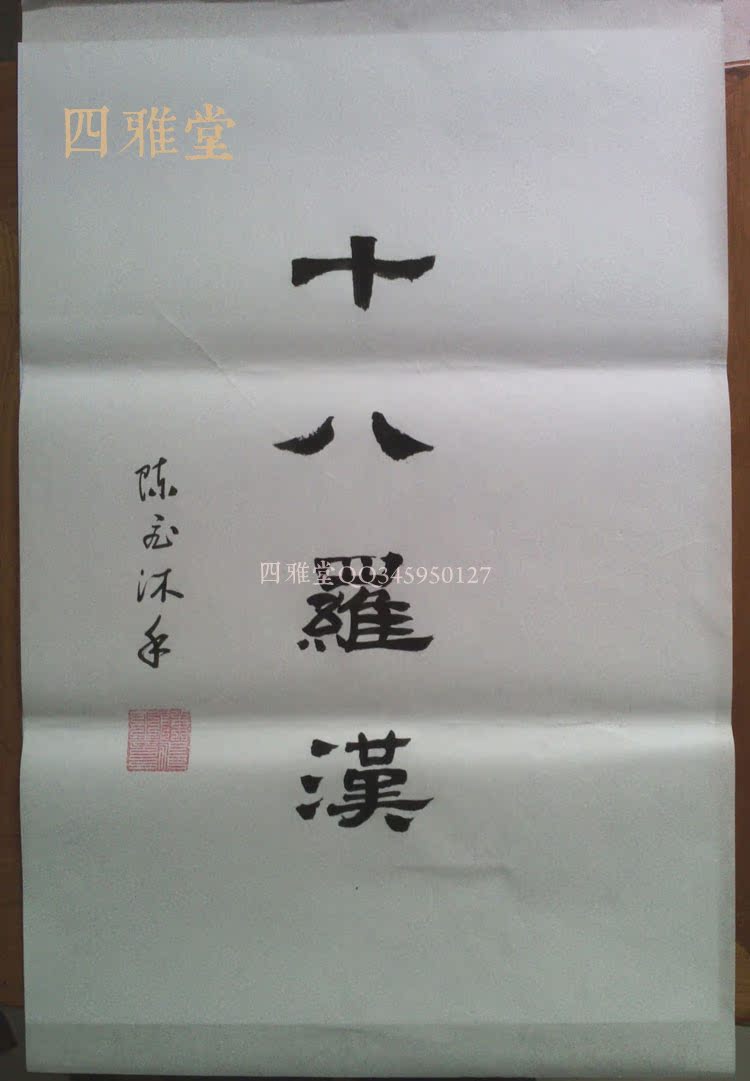 四雅堂
十八羅漢
四雅堂QQ345950127